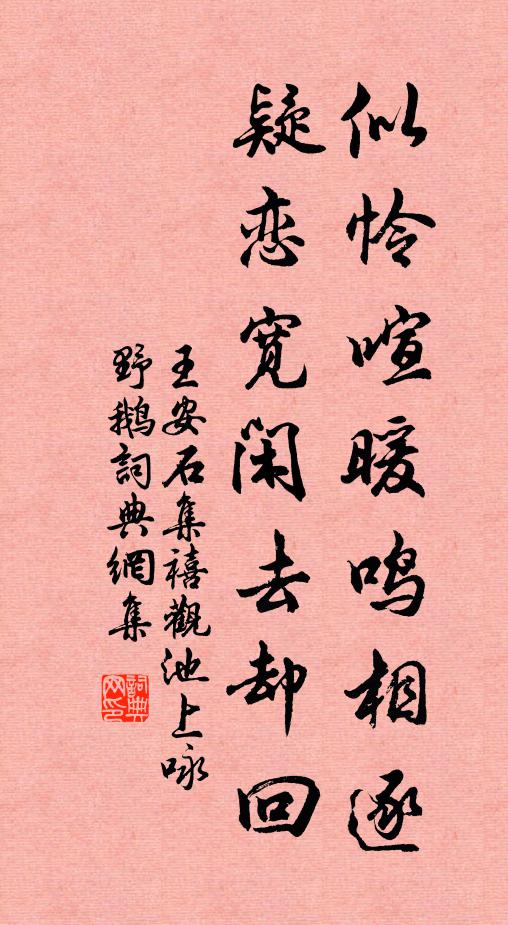 似怜喧暖鸣相逐
疑恋宽闲去却回
王安石集禧觀池上咏
野鵝詞典網集
詞典网印